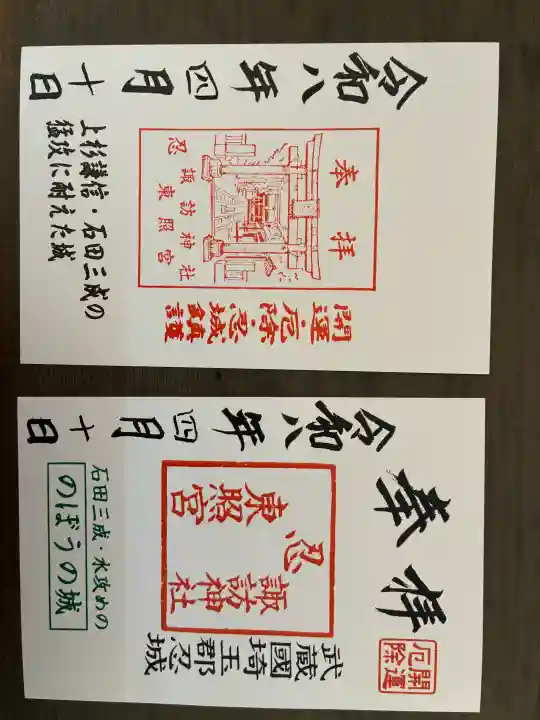 奉拝
諏訪神社
東照宮
忍
開運・厄除・忍城鎮護
令和八年四月十日
上杉謙信・石田三成の
猛攻に耐えた城
奉拝
開運
厄除
武蔵國埼玉郡忍城
忍
諏訪神社
東照宮
令和八年四月十日
石田三成・水攻めの
のぼうの城